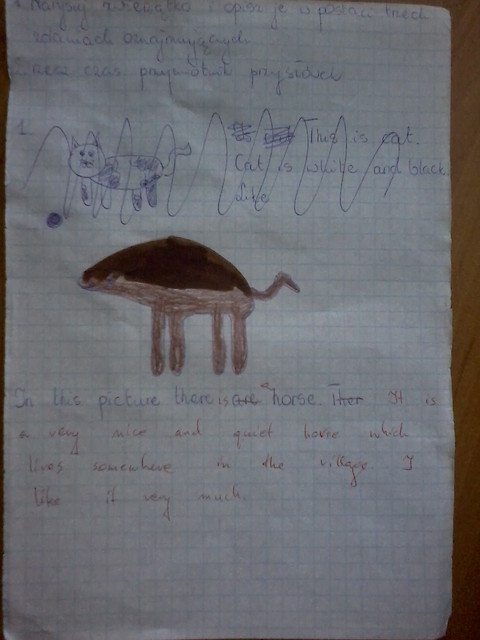 1. Narysuj zwierzątko i opisz je w postaci trzech
zdaniach oznajmujących
2. Rzecz czas. przymiotnik przysłówek
1.
This is cat.
Cat is white and black
like
In this picture there is are a horse. Ther It is
a very nice and quiet horse which
lives somewhere in the village I
like it very much.